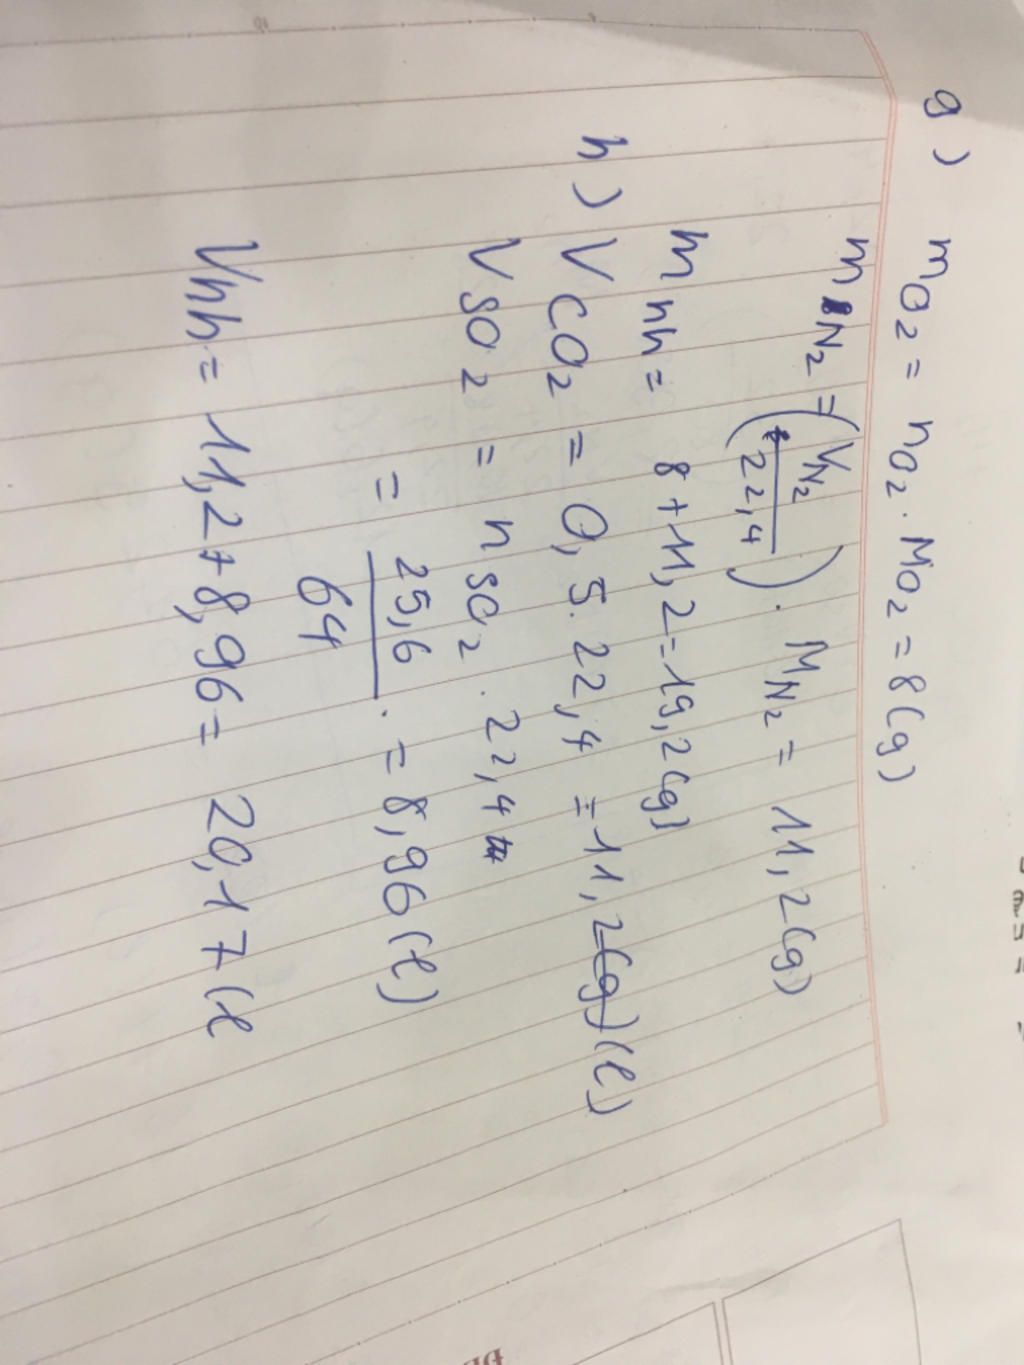 g) mO2 = nO2 . MO2 = 8(g)
mN2 = (VN2 / 22,4) . MN2 = 11,2(g)
m hh = 8 + 11,2 = 19,2(g)
h) VCO2 = 0,5 . 22,4 = 11,2 (g) (l)
VSO2 = nSO2 . 22,4
= 25,6 / 64 . = 8,96 (l)
Vhh = 11,2 + 8,96 = 20,17 (l